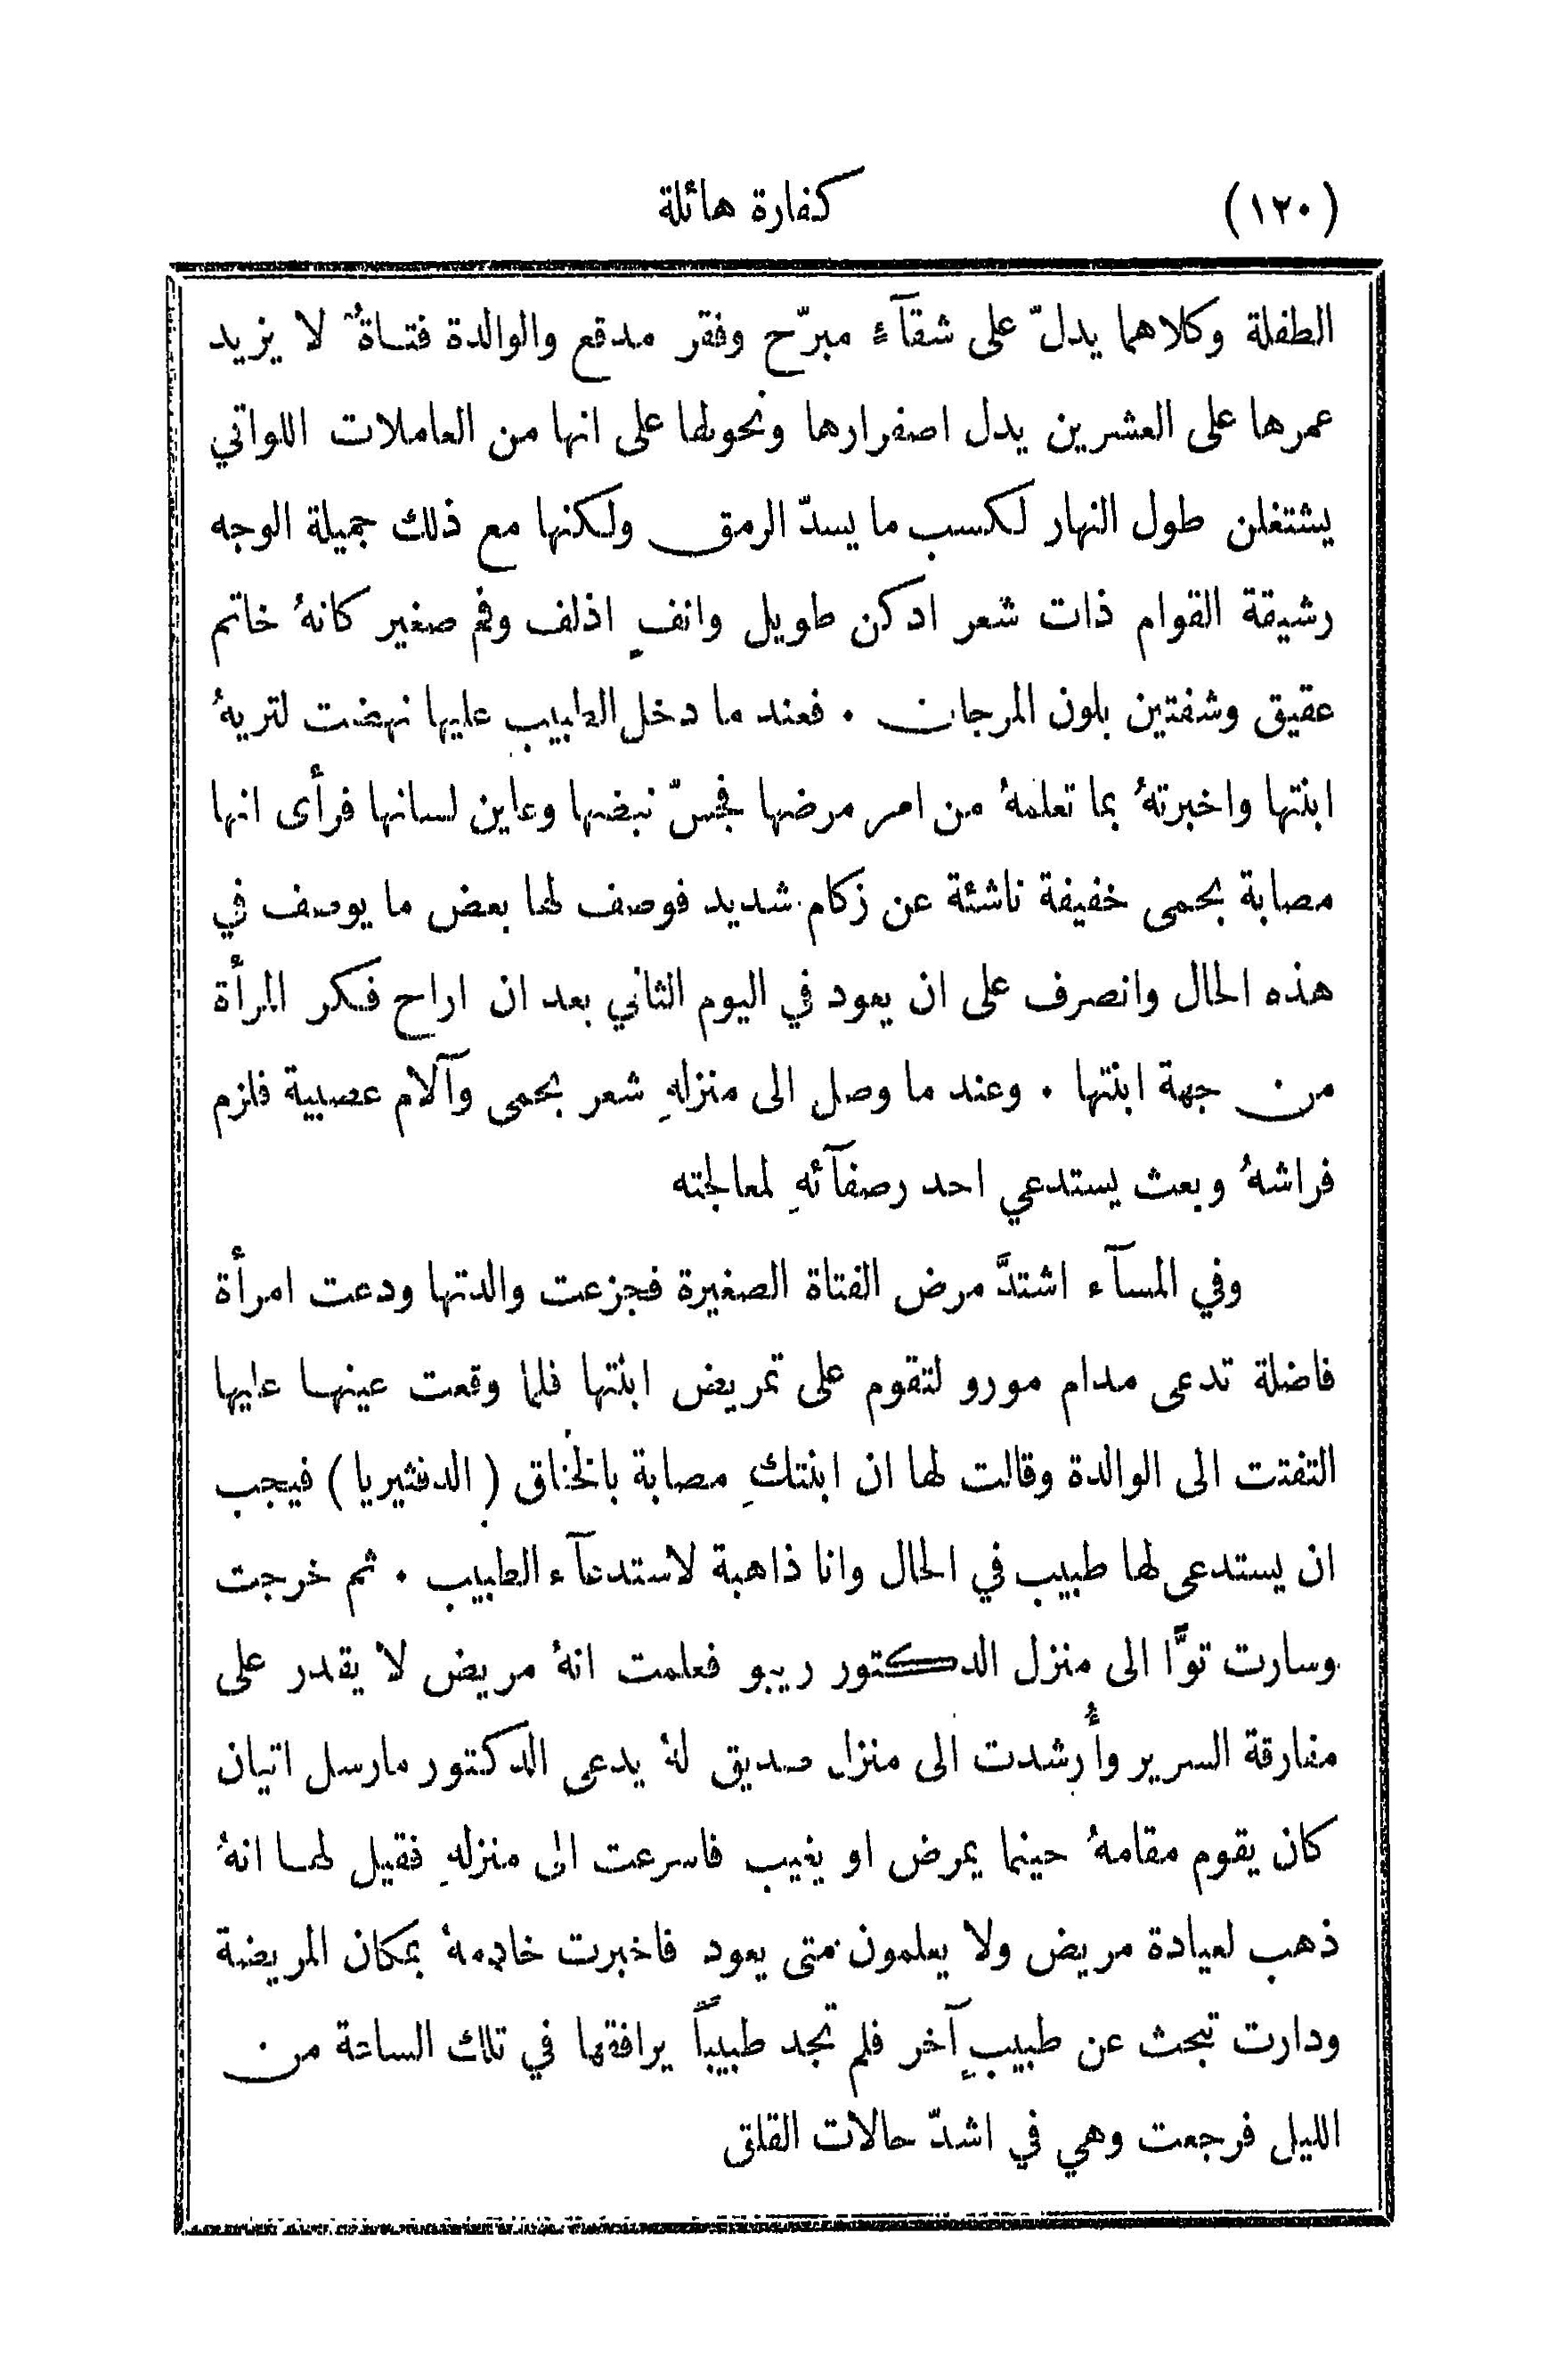 (١٢٠) كفارة هائلة
الطفلة وكلاهما يدلّ على شقآءٍ مبرّح وفقر مدقع والوالدة فتاةٌ لا يزيد
عمرها على العشرين يدل اصفرارها ونحولها على انها من العاملات اللواتي
يشتغلن طول النهار لكسب ما يسدّ الرمق ولكنها مع ذلك جميلة الوجه
رشيقة القوام ذات شعر ادكن طويل وانفٍ اذلف وفم صغير كانهُ خاتم
عقيق وشفتين بلون المرجان ٠ فعند ما دخل الطبيب عليها نهضت لتريهُ
ابنتها واخبرتهُ بما تعلمهُ من امر مرضها فجسّ نبضها وعاين لسانها فرأى انها
مصابة بحمى خفيفة ناشئة عن زكام شديد فوصف لها بعض ما يوصف في
هذه الحال وانصرف على ان يعود في اليوم الثاني بعد ان اراح فكر المرأة
من جهة ابنتها ٠ وعند ما وصل الى منزلهِ شعر بحمى وآلام عصبية فلزم
فراشهُ وبعث يستدعي احد رصفآئهِ لمعالجته
وفي المسآء اشتدَّ مرض الفتاة الصغيرة فجزعت والدتها ودعت امرأة
فاضلة تدعى مدام مورو لتقوم على تمريض ابنتها فلما وقعت عينها عليها
التفتت الى الوالدة وقالت لها ان ابنتكِ مصابة بالخناق ( الدفثيريا ) فيجب
ان يستدعى لها طبيب في الحال وانا ذاهبة لاستدعآء الطبيب ٠ ثم خرجت
وسارت توًّا الى منزل الدكتور ريبو فعلمت انهُ مريض لا يقدر على
مفارقة السرير وأُرشدت الى منزل صديق لهُ يدعى الدكتور مارسل اتيان
كان يقوم مقامهُ حينما يمرض او يغيب فاسرعت الى منزلهِ فقيل لها انهُ
ذهب لعيادة مريض ولا يعلمون متى يعود فاخبرت خادمهُ بمكان المريضة
ودارت تبحث عن طبيبٍ آخر فلم تجد طبيباً يرافقها في تلك الساعة من
الليل فرجعت وهي في اشدّ حالات القلق